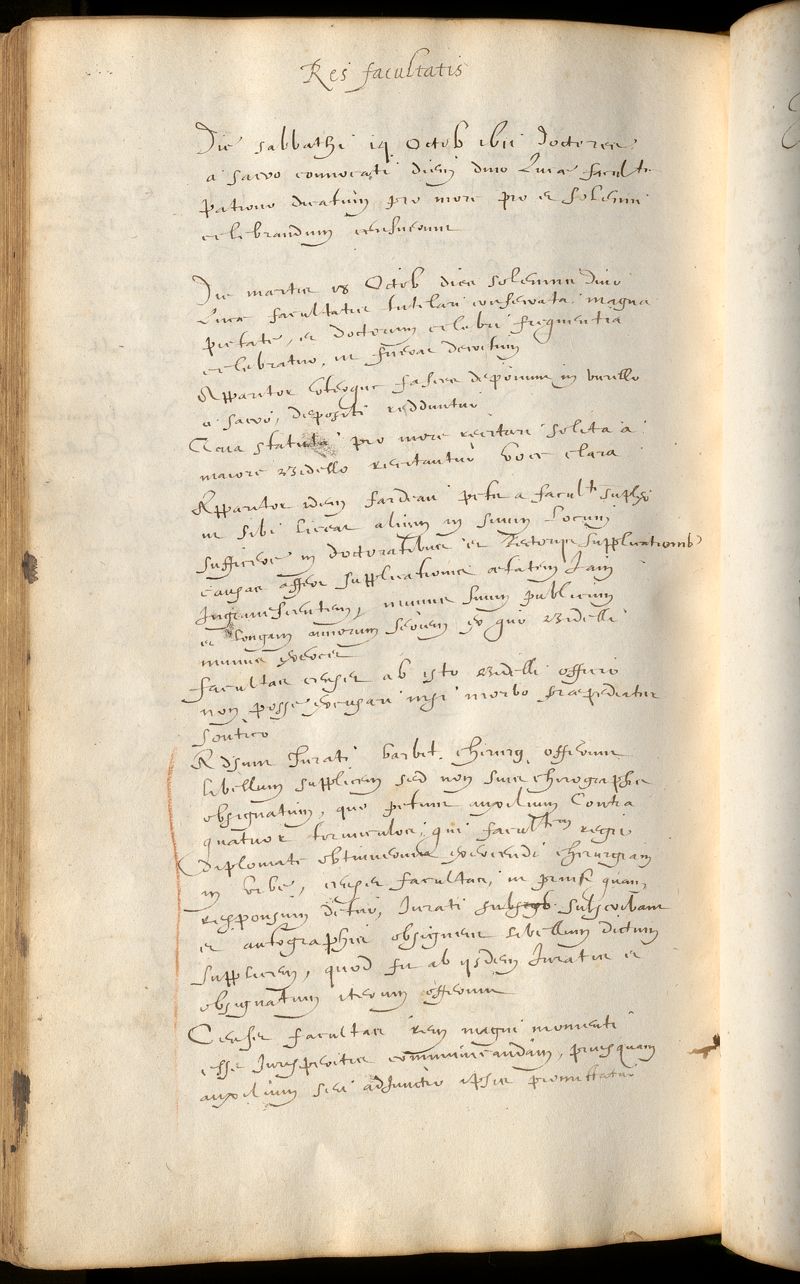 Res facultatis
Die sabbathi 14 Octob 1611 doctores
a sacro convocati diem divo Lucæ facult
patrono dicatum pro more pro et solemni
celebrandum censuerunt
Die martis 18 Octob dies solemnis Divo
Lucæ facultatis tutelari consecrata magna
pietate, et doctorum celebri frequentia
celebratur, ut fuerat decretum
Apparitor uterque fasces deponunt in
a sacro, depositi redduntur
statuta pro more recitari solita a
maiore Bidello recitantur voce clara
Apparitor idem petit a facult supplex
ut sibi liceat alium in suum locum
sufficere in doctoratibus et supplicationib
causas affert supplicationis ætatem iam
ingravescentem, munus suum publicum
et longam annorum seriem ex quo Bidelli
munus exercet
facultas censet ab isto Bidelli officio
non posse excusari nisi morbo præpediatur
sontico
Adsunt Jurati barbit. chirurg. offerunt
libellum supplicem sed non suis chirographis
obsignatum, quo petunt auxilium contra
quatuor qui facultatem regio
diplomate obtinuerunt exercendi chirurgiam
in urbe, censet facultas, ut prius quam
responsum detur, Jurati subscribant
et autographis obsignent libellum dictum
supplicem, quod fit ab iisdem Juratis et
obsignatum iterum offerunt
Censet facultas rem magni momenti
esse Jurisperitis communicandam, priusquam
auxilium seu adjunctio ipsis promittatur